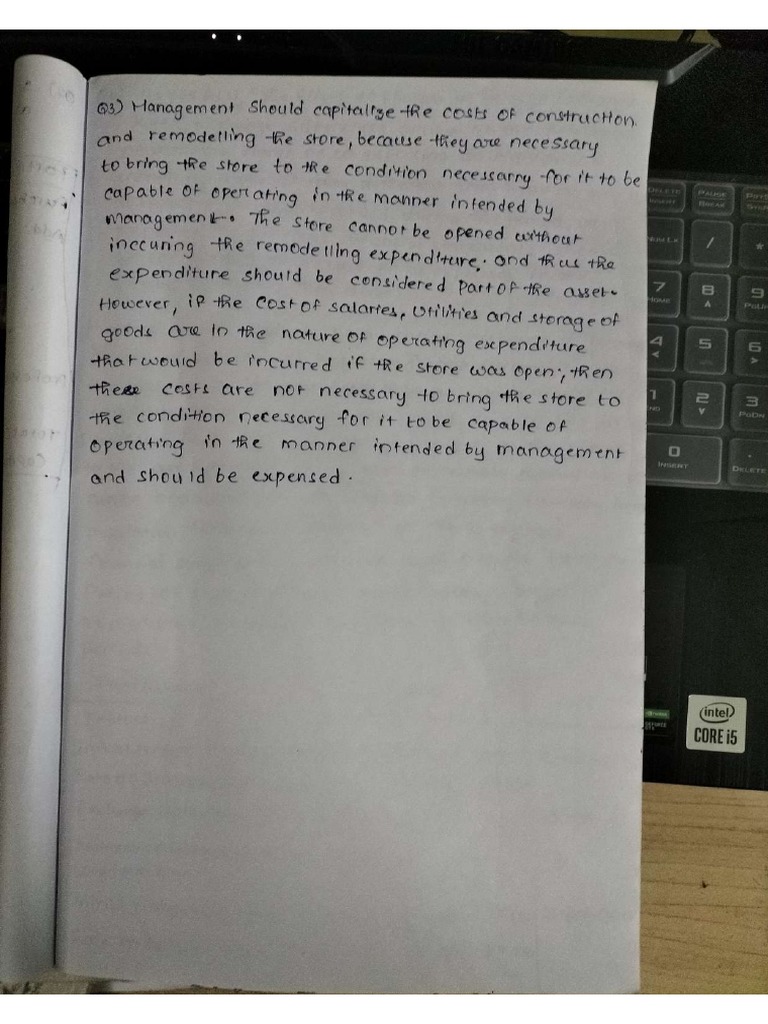 Q3) Management should capitalize the costs of construction
and remodelling the store, because they are necessary
to bring the store to the condition necessarry for it to be
capable of operating in the manner intended by
management. The store cannot be opened without
inccuring the remodelling expenditure. and thus the
expenditure should be considered part of the asset.
However, if the cost of salaries, utilities and storage of
goods are in the nature of operating expenditure
that would be incurred if the store was open, then
these costs are not necessary to bring the store to
the condition necessary for it to be capable of
operating in the manner intended by management
and should be expensed.
DELETE
INSERT
PAUSE
BREAK
Num Lk
/
*
7
HOME
8
9
PgUp
4
5
6
1
END
2
3
PgDn
0
INSERT
.
DELETE
intel
CORE i5